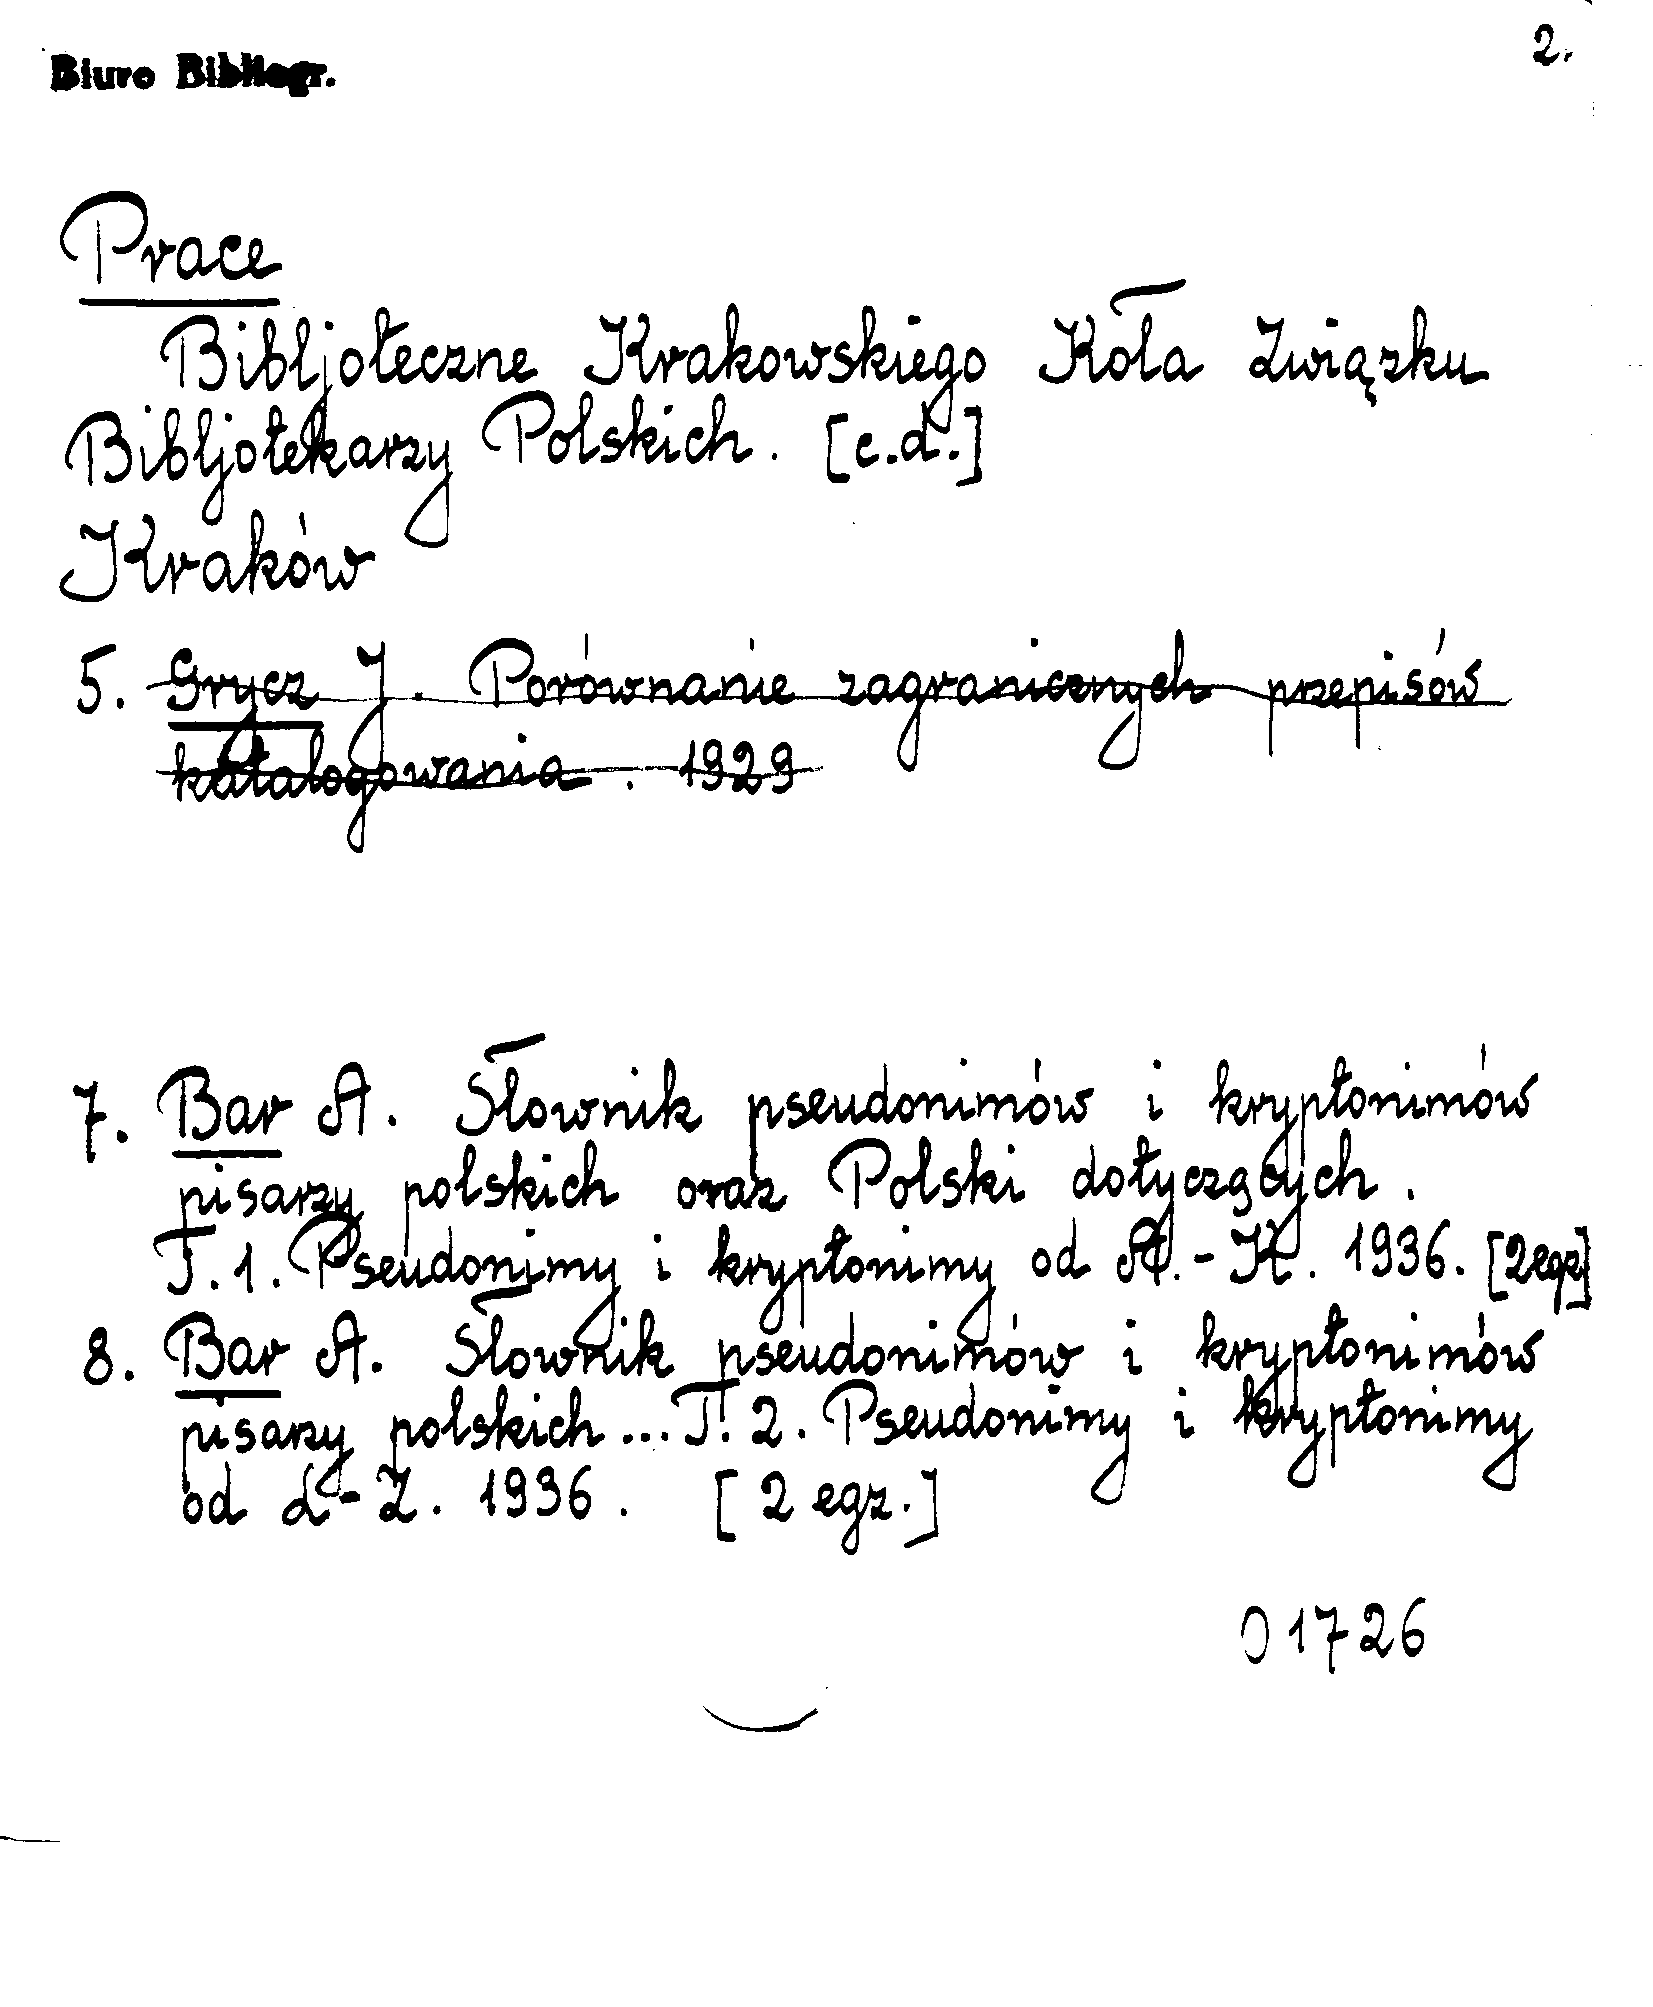 Biuro Bibliogr.
2.
Prace
Bibljoteczne Krakowskiego Koła Związku
Bibljotekarzy Polskich. [c.d.]
Kraków
5. Grycz J. Porównanie zagranicznych przepisów
katalogowania. 1929
7. Bar A. Słownik pseudonimów i kryptonimów
pisarzy polskich oraz Polski dotyczących.
T.1. Pseudonimy i kryptonimy od A.-K. 1936. [2egz]
8. Bar A. Słownik pseudonimów i kryptonimów
pisarzy polskich... T. 2. Pseudonimy i kryptonimy
od L-Z. 1936. [2 egz.]
01726